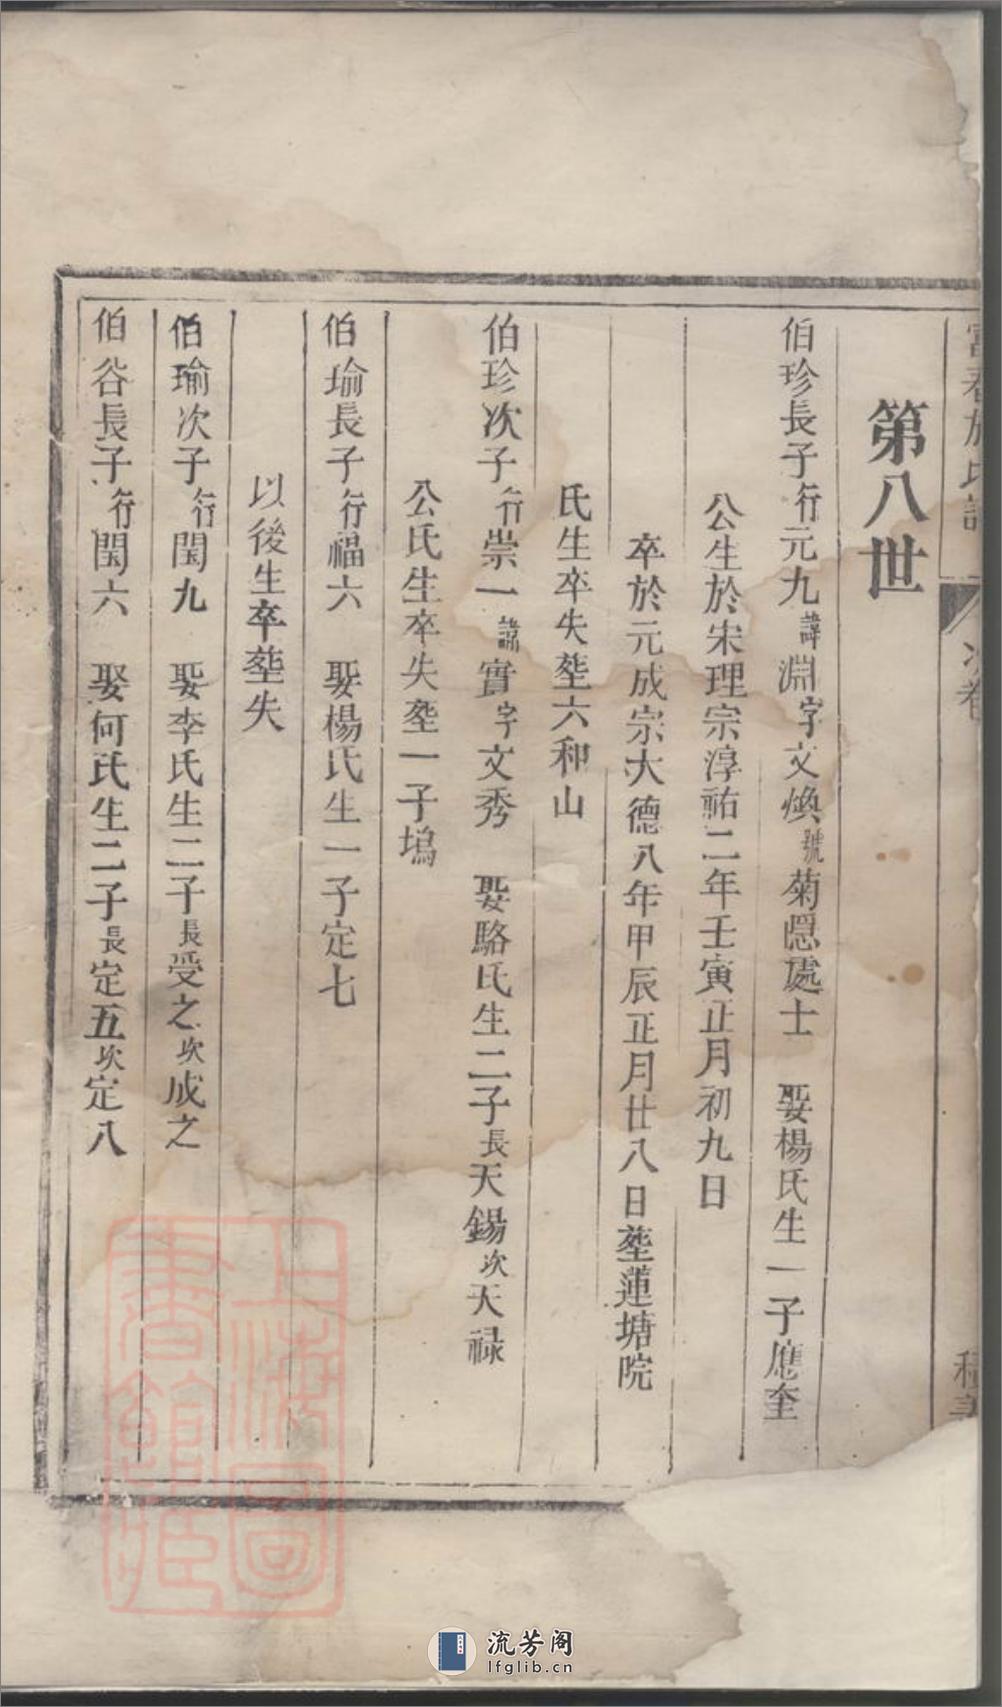 第八世
伯珍長子行元九諱淵字文煥號菊隠處士　娶楊氏生一子應奎
公生於宋理宗淳祐二年壬寅正月初九日
卒於元成宗大德八年甲辰正月廿八日塟蓮塘院
氏生卒失塟六和山
伯珍次子行崇一諱實字文秀　娶駱氏生二子長天錫次天禄
公氏生卒失塟一子塢
伯瑜長子行福六　娶楊氏生一子定七
以後生卒塟失
伯瑜次子行閏九　娶李氏生二子長受之次成之
伯谷長子行閏六　娶何氏生二子長定五次定八
上海圖書館藏
流芳阁
lfglib.cn